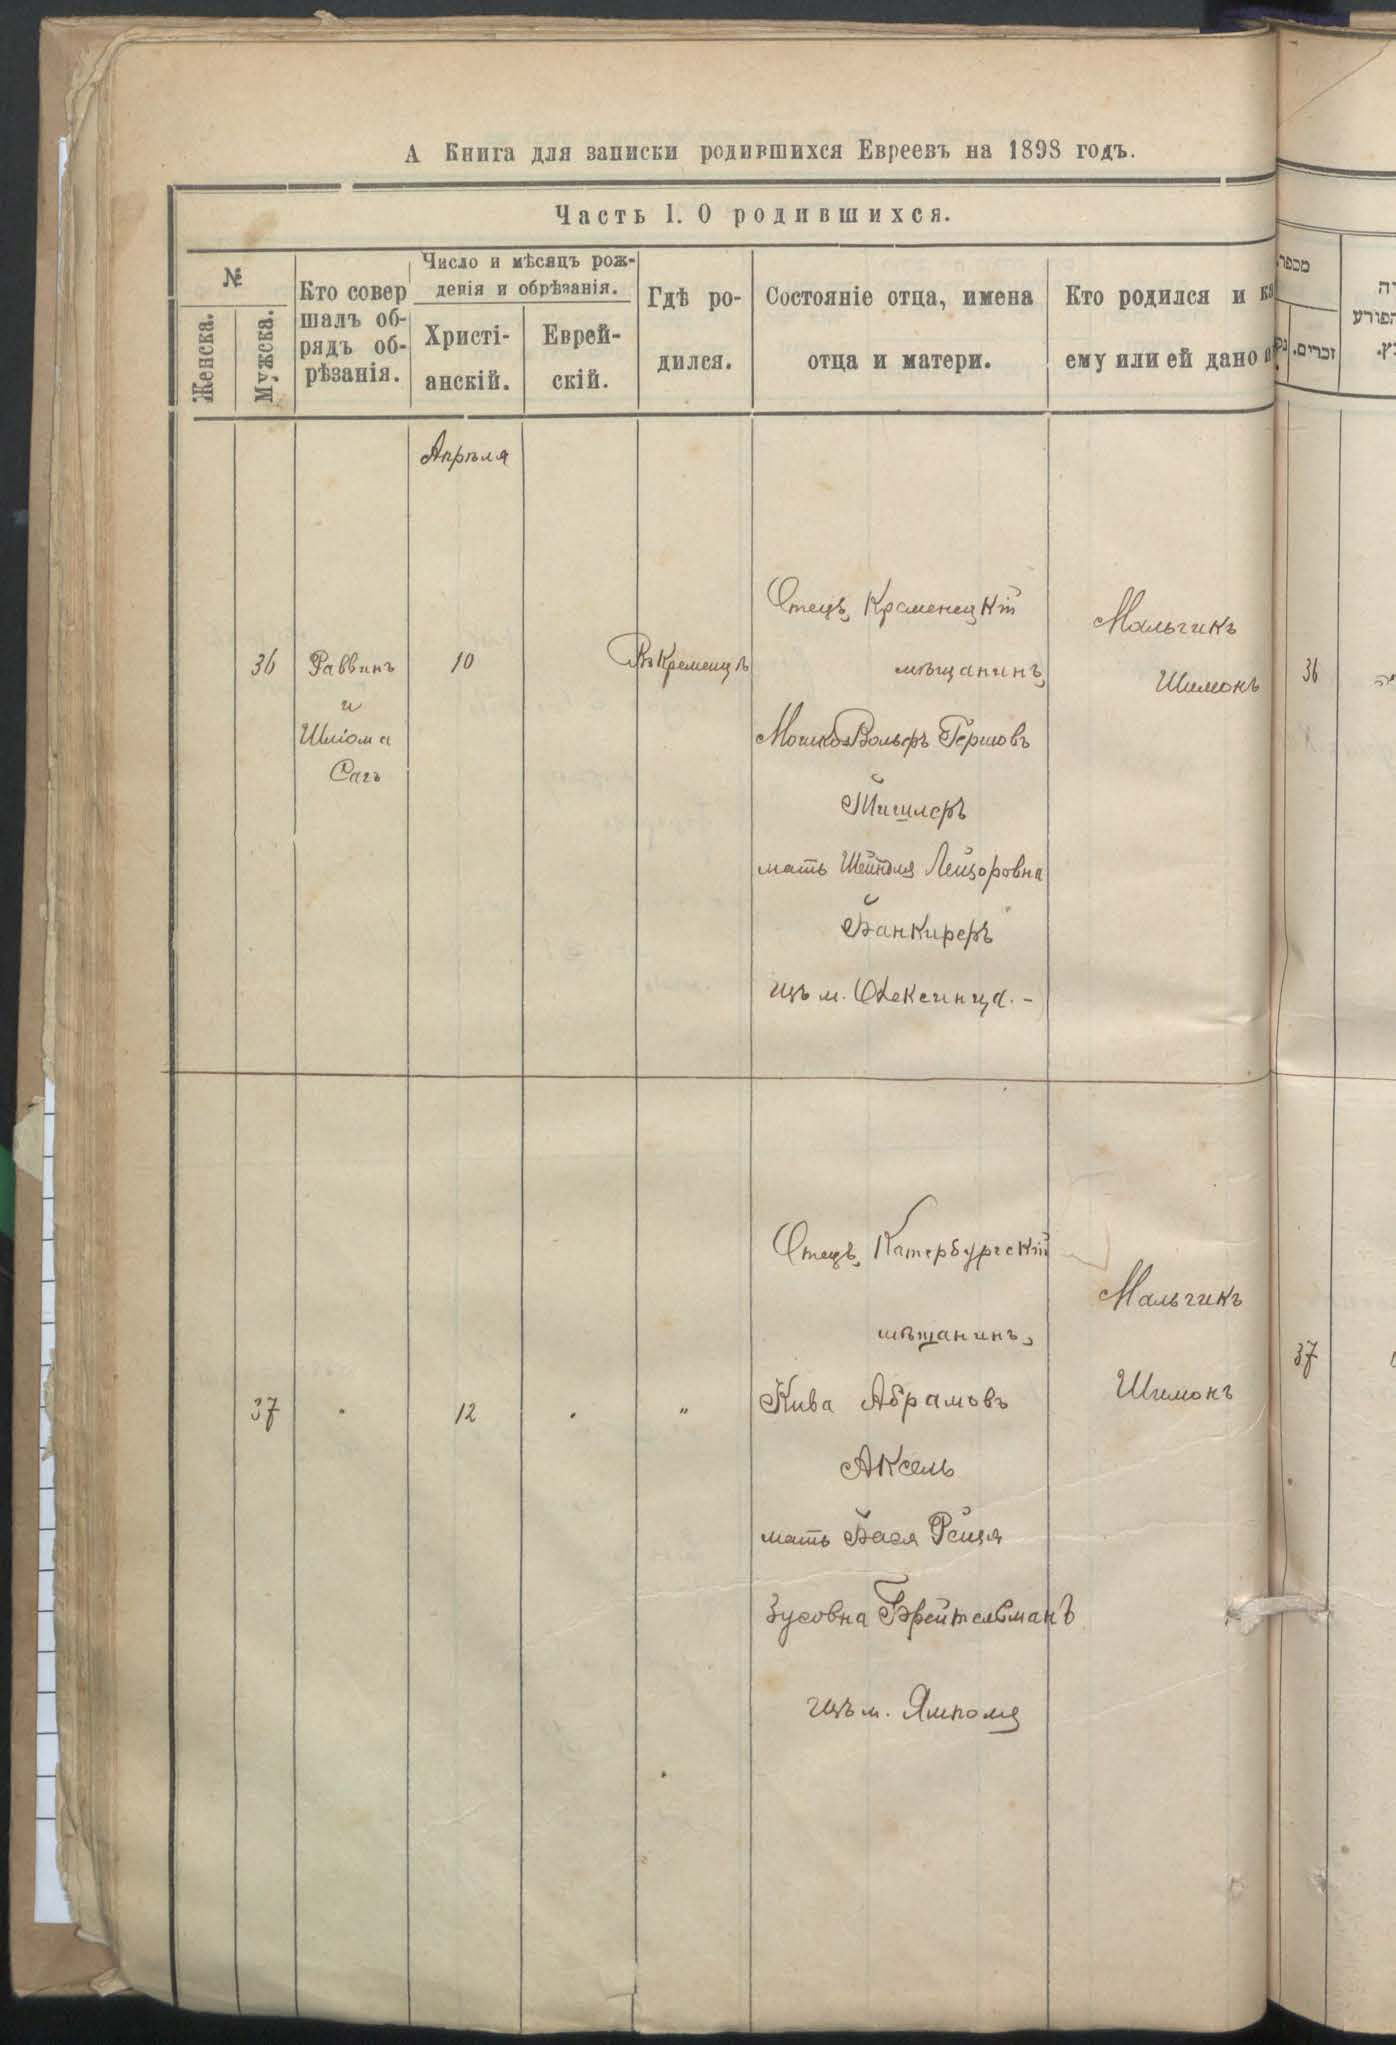 А Книга для записки родившихся Евреевъ на 1898 годъ.
Часть 1. О родившихся.
№
Женска.
Мужска.
Кто совер
шалъ об-
рядъ об-
рѣзанія.
Число и мѣсяцъ рож-
денія и обрѣзанія.
Христі-
анскій.
Еврей-
скій.
Гдѣ ро-
дился.
Состояніе отца, имена
отца и матери.
Кто родился и ка
ему или ей дано и
מספר
זכרים.
הפורע
Апрѣля
36
Раввинъ
и
Шлiома
Сагъ
10
Въ Кременцѣ
Отецъ, Кременецкій
мѣщанинъ,
Мошко Вольфъ Гершовъ
Тишлеръ
мать Шейндля Лейзоровна
Банкиреръ
изъ м. Олексинца. -
Мальчикъ
Шимонъ
36
37
12
"
Отецъ, Катербургскій
мѣщанинъ,
Кива Абрамовъ
Аксель
мать Бася Рейзя
Зусовна Брейтельманъ
изъ м. Ямполя
Мальчикъ
Шимонъ
37